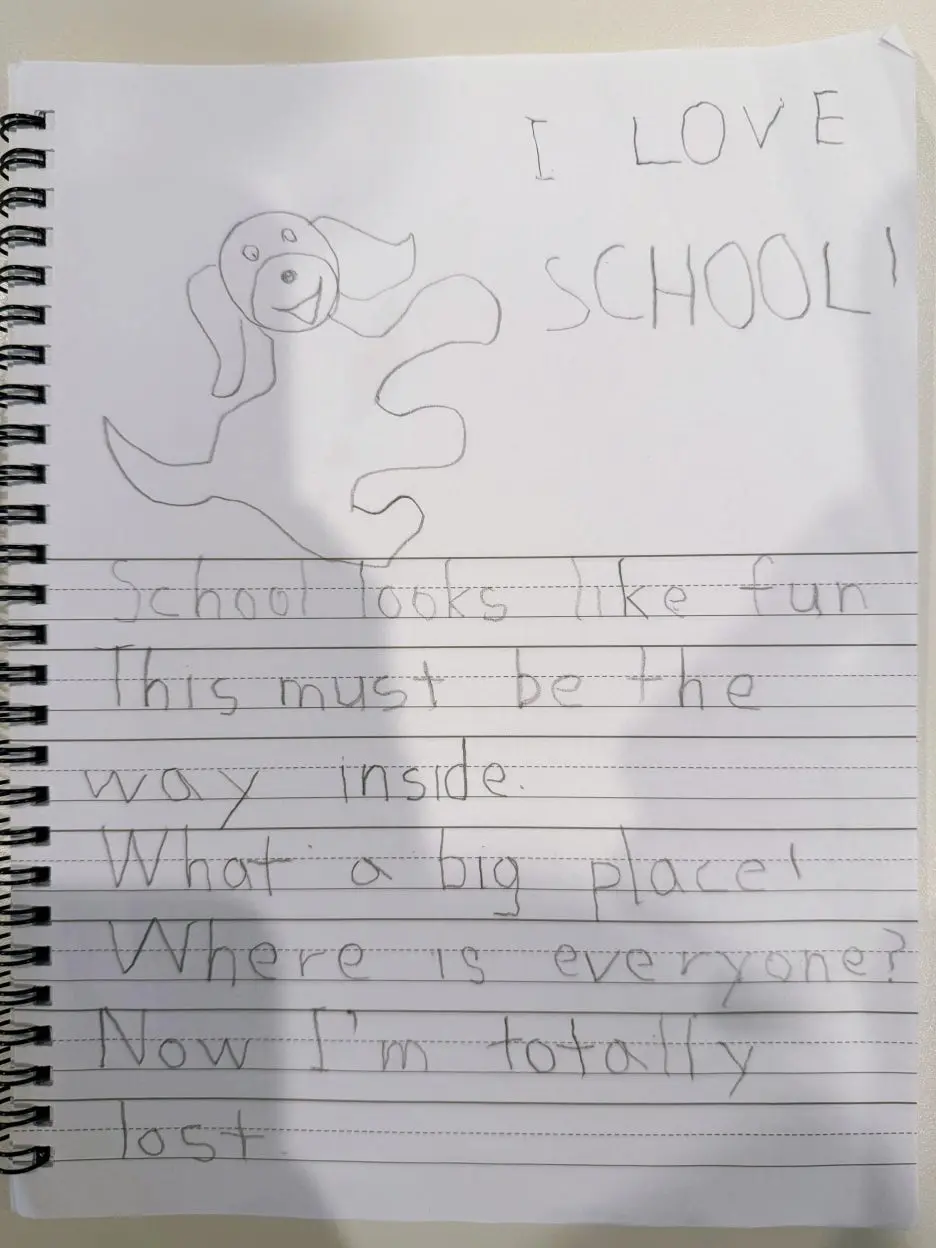 I LOVE
SCHOOL!
School looks like fun
This must be the
way inside.
What a big place!
Where is everyone?
Now I'm totally
lost